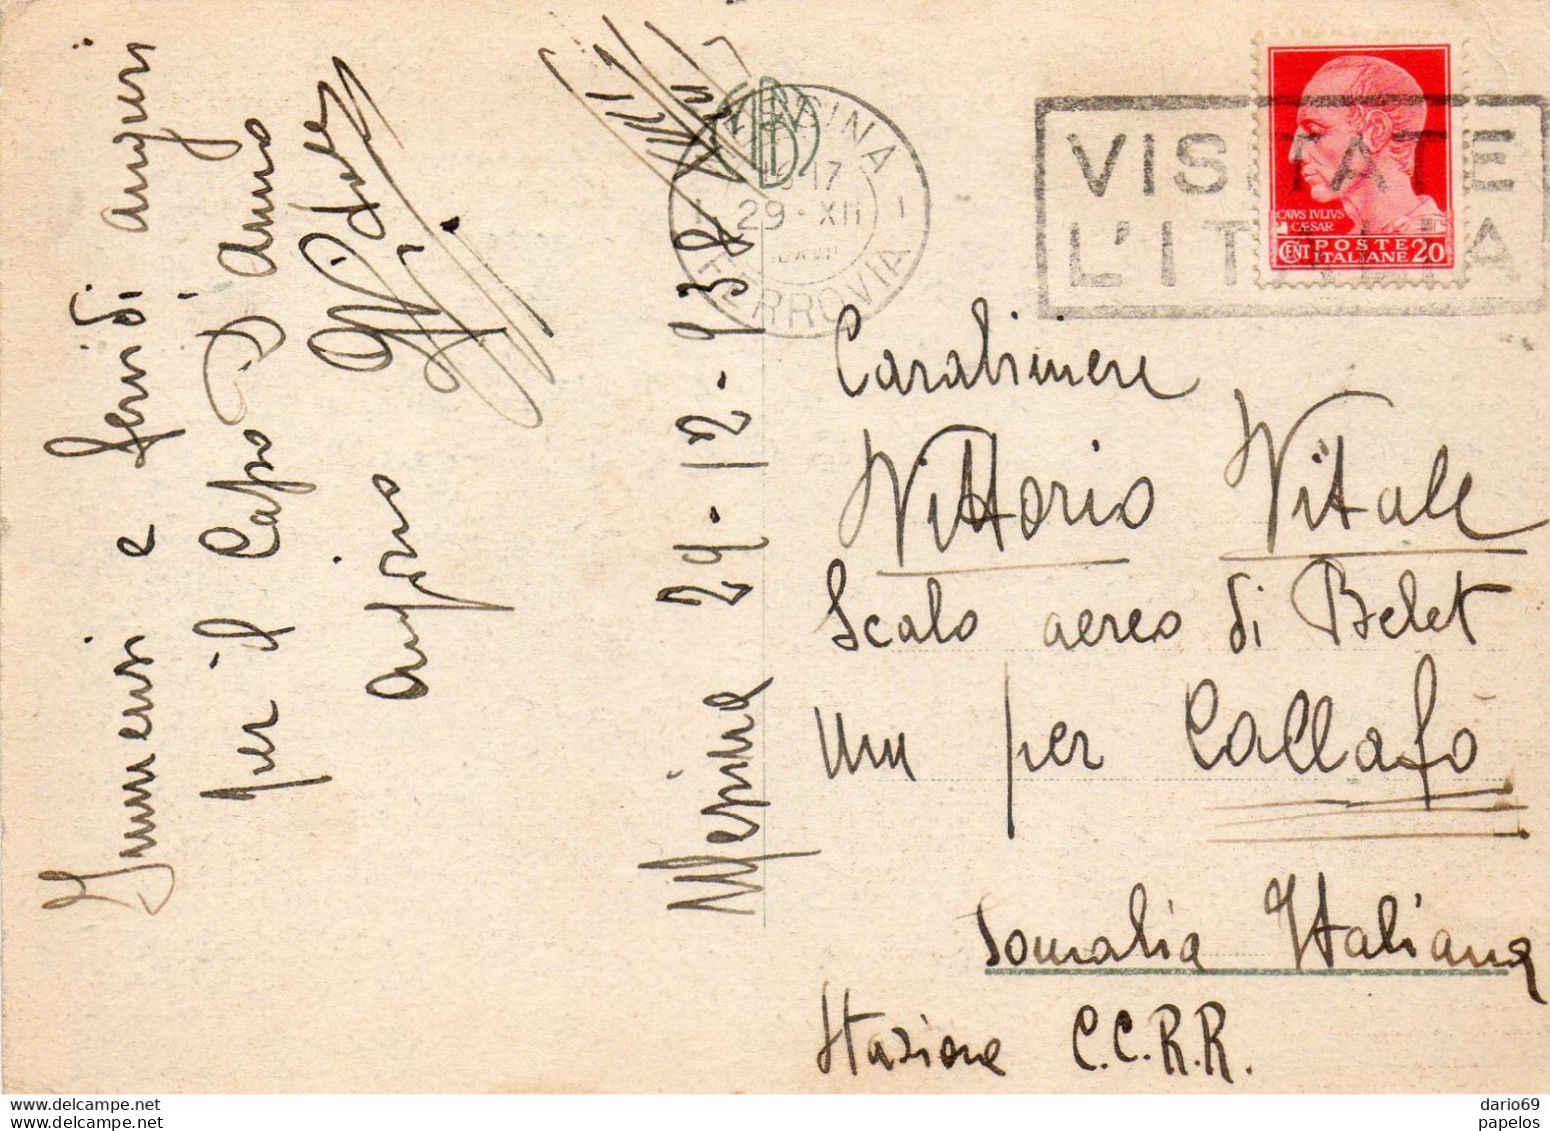 Immensi e fervidi auguri
per il Capo D'anno
Messina 29-12-938 XVII
MESSINA
FERROVIA
17
29·XII
VISITATE
L'ITALIA
CAIVS IVLIVS
CÆSAR
CENT POSTE
ITALIANE 20
Carabiniere
Vittorio Vitale
Scalo aereo di Belet
Uen per Callafo
Somalia Italiana
Stazione C.C.R.R.
delcampe.net
delcampe.net
dario69
papelos